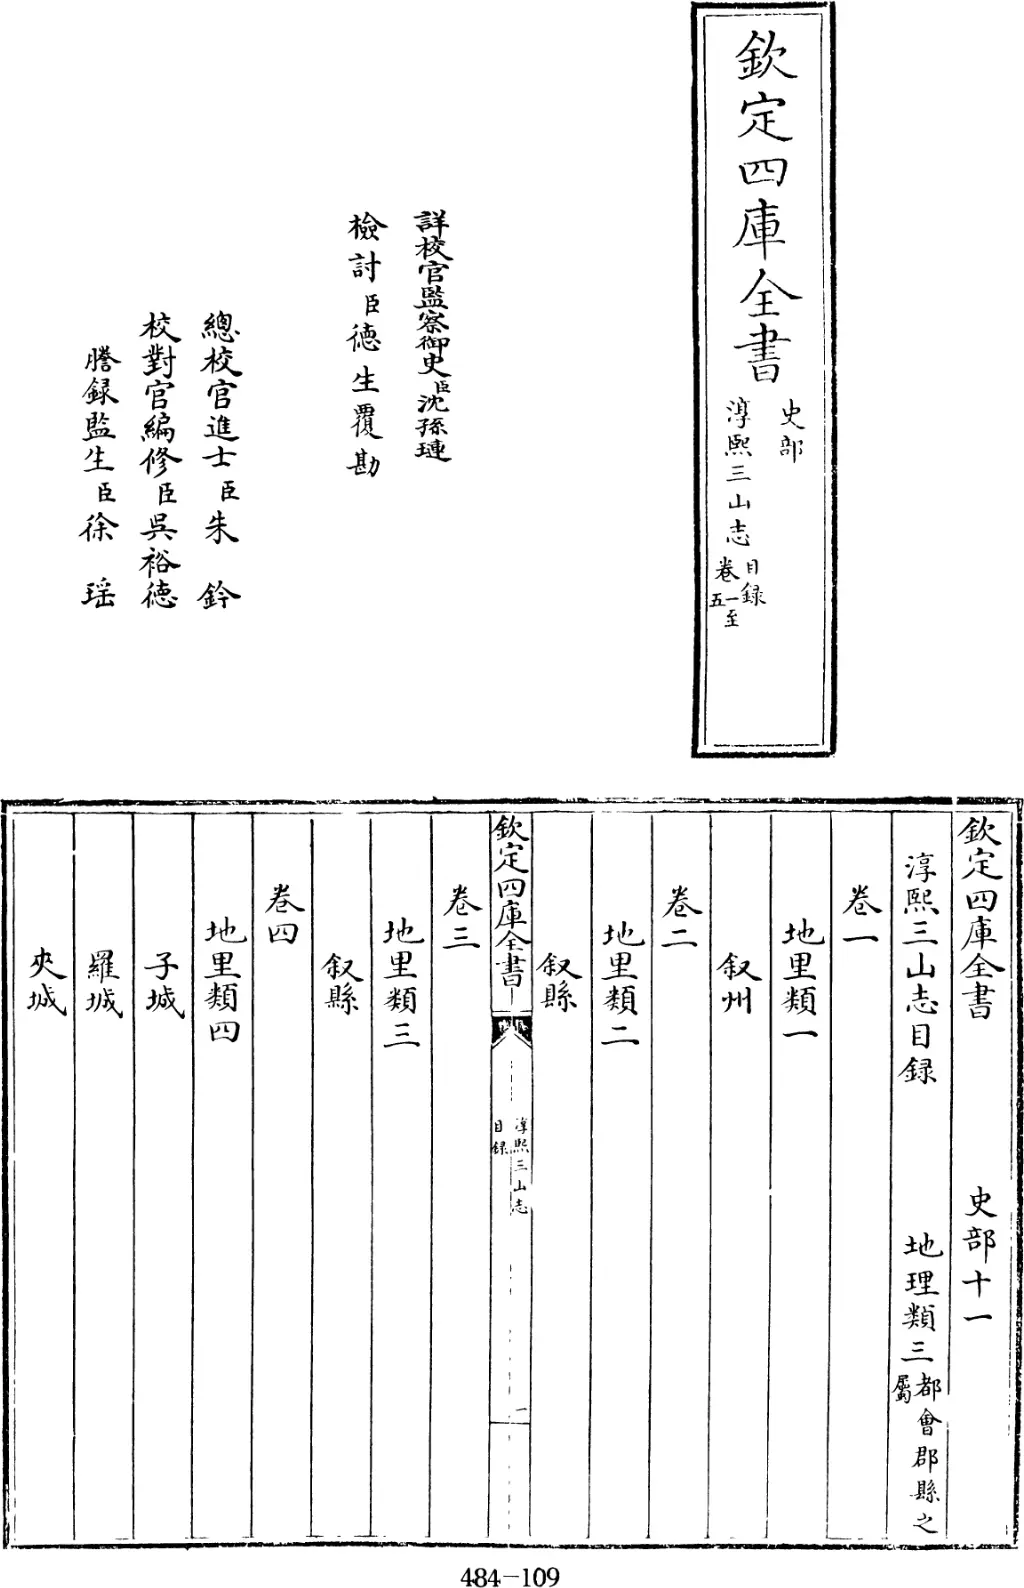 欽定四庫全書
史部
淳熙三山志
目録
卷一至
五
詳校官監察御史臣沈孫璉
檢討臣德生覆勘
總校官進士臣朱鈐
校對官編修臣吳裕德
謄録監生臣徐瑶
欽定四庫全書 史部十一
淳熙三山志目録 地理類三都會郡縣之
屬
卷一
地里類一
叙州
卷二
地里類二
叙縣
欽定四庫全書
淳熙三山志
目録
一
卷三
地里類三
叙縣
卷四
地里類四
子城
羅城
夾城
484-109